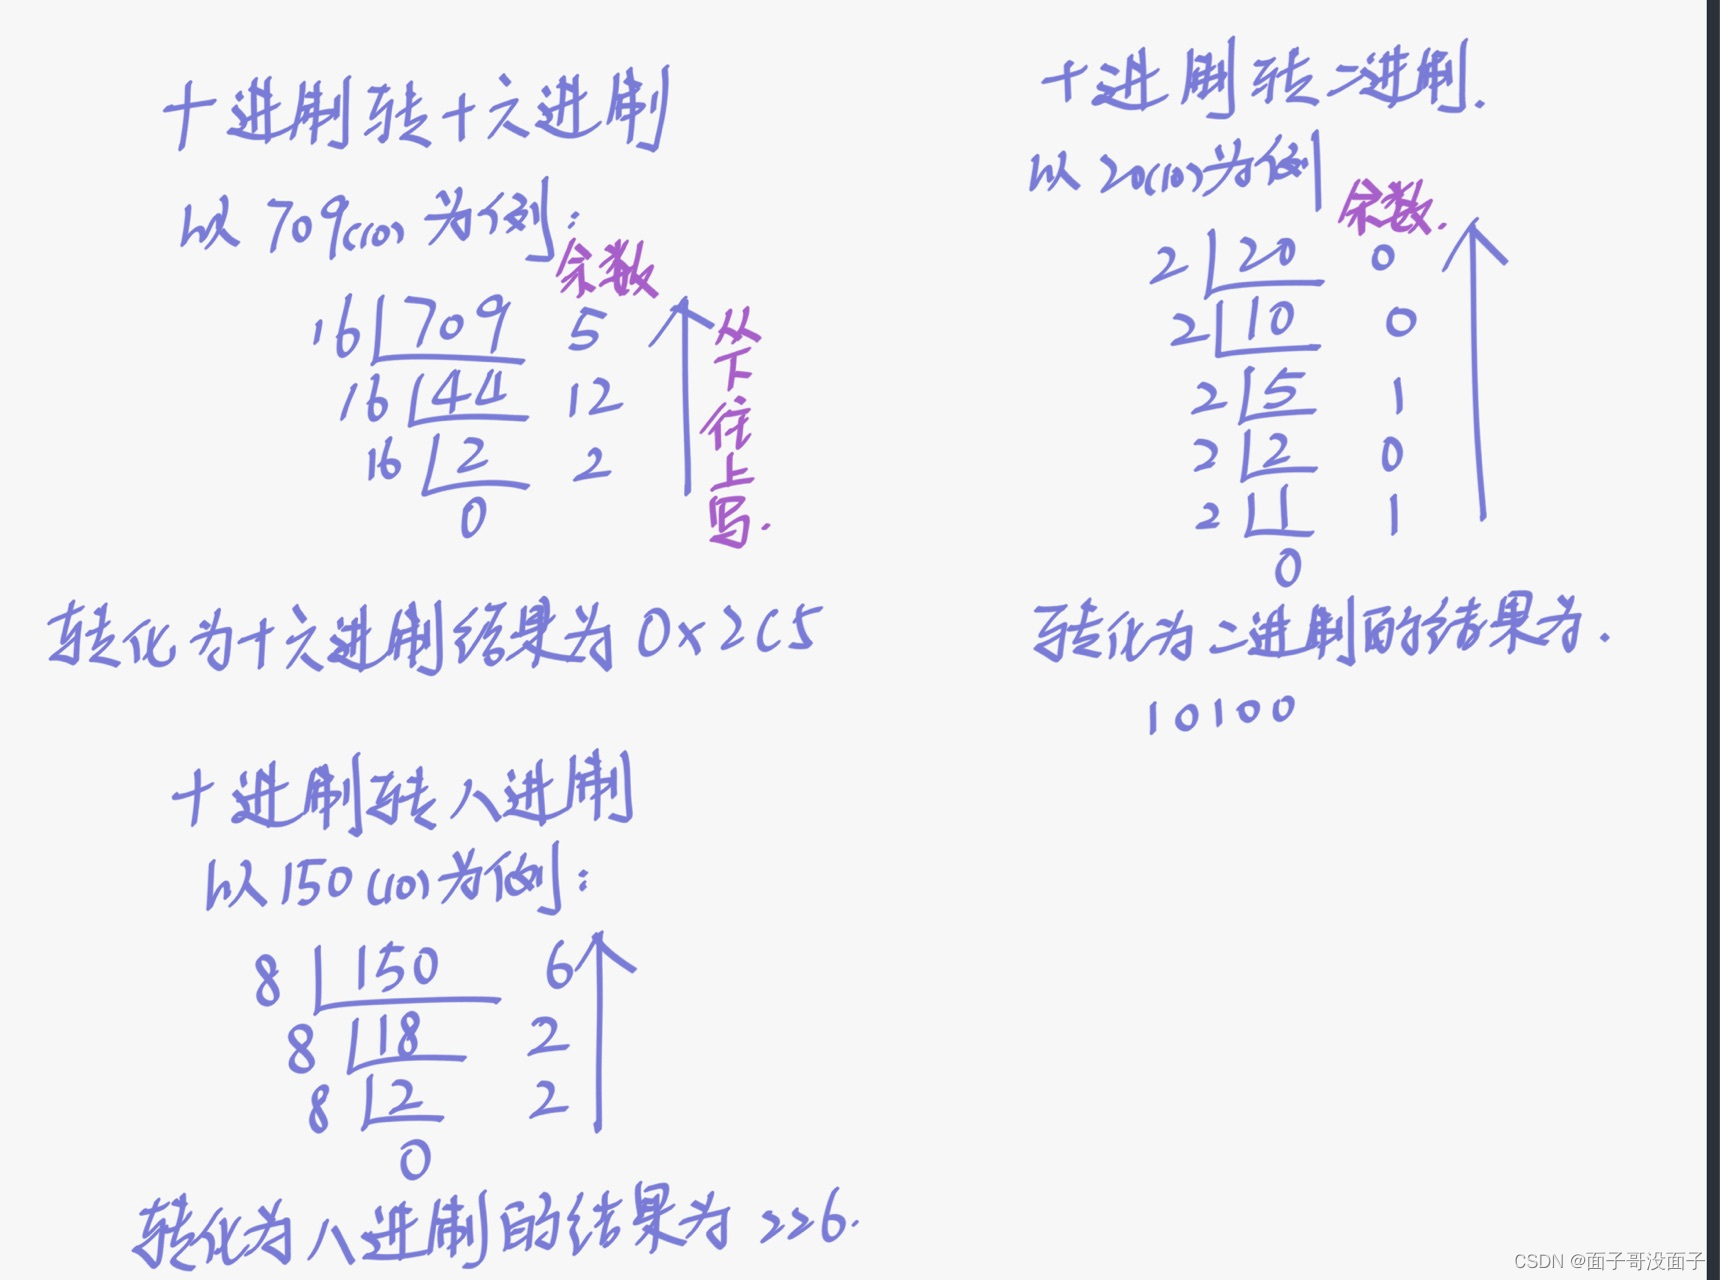 十进制转十六进制
以 709(10) 为例:
余数
16 709 5
16 44 12
16 2 2
0
从下往上写.
转化为十六进制结果为 0x2C5
十进制转二进制.
以 20(10)为例
余数.
2 20 0
2 10 0
2 5 1
2 2 0
2 1 1
0
转化为二进制的结果为.
10100
十进制转八进制
以150(10)为例:
8 150 6
8 18 2
8 2 2
0
转化为八进制的结果为 226.
CSDN @面子哥没面子